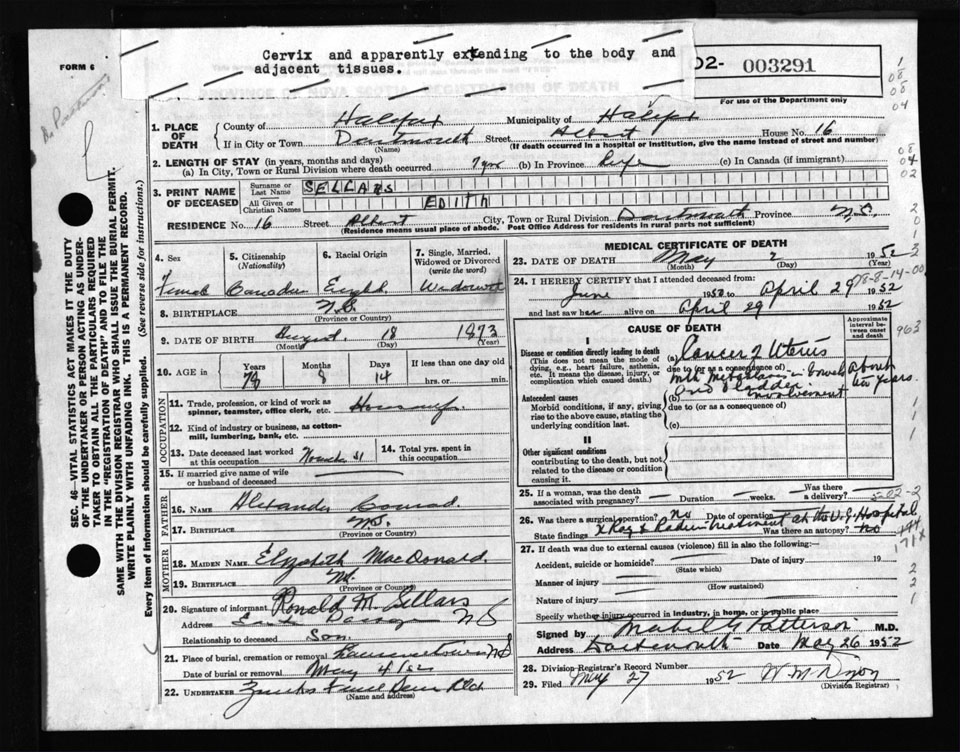 Cervix and apparently extending to the body and
adjacent tissues.
FORM 6
02- 003291
For use of the Department only
PROVINCE OF NOVA SCOTIA REGISTRATION OF DEATH
SEC. 46—VITAL STATISTICS ACT MAKES IT THE DUTY
OF THE UNDERTAKER OR PERSON ACTING AS UNDER-
TAKER TO OBTAIN ALL THE PARTICULARS REQUIRED
IN THE "REGISTRATION OF DEATH" AND TO FILE THE
SAME WITH THE DIVISION REGISTRAR WHO SHALL ISSUE THE BURIAL PERMIT.
WRITE PLAINLY WITH UNFADING INK. THIS IS A PERMANENT RECORD.
Every item of information should be carefully supplied. (See reverse side for instructions.)
1. PLACE OF DEATH
County of Halifax Municipality of Halifax
If in City or Town Dartmouth Street Albert House No. 16
(Name) (If death occurred in a hospital or institution, give the name instead of street and number)
2. LENGTH OF STAY (in years, months and days)
(a) In City, Town or Rural Division where death occurred 7 yrs (b) In Province Life (c) In Canada (if immigrant)
3. PRINT NAME OF DECEASED
Surname or Last Name SELLARS
All Given or Christian Names EDITH
RESIDENCE No. 16 Street Albert City, Town or Rural Division Dartmouth Province N.S.
(Residence means usual place of abode. Post Office Address for residents in rural parts not sufficient)
4. Sex
Female
5. Citizenship
(Nationality)
Canadian
6. Racial Origin
English
7. Single, Married, Widowed or Divorced
(write the word)
Widowed
8. BIRTHPLACE N.S.
(Province or Country)
9. DATE OF BIRTH August 18 1873
(Month) (Day) (Year)
10. AGE in Years Months Days If less than one day old
78 8 14 hrs. or min.
OCCUPATION
11. Trade, profession, or kind of work as
spinner, teamster, office clerk, etc. Housewife
12. Kind of industry or business, as cotton-
mill, lumbering, bank, etc.
13. Date deceased last worked
at this occupation
14. Total yrs. spent in
this occupation
15. If married give name of wife
or husband of deceased
FATHER
16. Name Alexander Conrad
17. Birthplace N.S.
(Province or Country)
MOTHER
18. MAIDEN NAME Elizabeth MacDonald
19. BIRTHPLACE N.S.
(Province or Country)
20. Signature of informant Ronald M. Sellars
Address Eastern Passage N S
Relationship to deceased Son
21. Place of burial, cremation or removal Lawrencetown NS
Date of burial or removal May 4/52
22. UNDERTAKER
(Name and address)
MEDICAL CERTIFICATE OF DEATH
23. DATE OF DEATH May 2 1952
(Month) (Day) (Year)
24. I HEREBY CERTIFY that I attended deceased from:
June 1950 to April 29 1952
and last saw her alive on April 29 1952
CAUSE OF DEATH
Approximate interval between onset and death
I
Disease or condition directly leading to death
(This does not mean the mode of
dying, e.g., heart failure, asthenia,
etc. It means the disease, injury, or
complication which caused death.)
(a) Cancer of Uterus
due to (or as a consequence of)
with in bowel about
and bladder two years.
(b) involvement
Antecedent causes
Morbid conditions, if any, giving
rise to the above cause, stating the
underlying condition last.
due to (or as a consequence of)
(c)
II
Other significant conditions
contributing to the death, but not
related to the disease or condition
causing it.
25. If a woman, was the death
associated with pregnancy? Duration weeks. Was there a delivery?
26. Was there a surgical operation? No Date of operation
State findings X Ray & Radium treatment at the V.G. Hospital
Was there an autopsy? no
27. If death was due to external causes (violence) fill in also the following:
Accident, suicide or homicide? Date of injury 19
(State which)
Manner of injury
(How sustained)
Nature of injury
Specify whether injury occurred in industry, in home, or in public place
Signed by Mabel G Patterson M.D.
Address Dartmouth Date May 26 1952
28. Division Registrar's Record Number
29. Filed May 27 1952
(Division Registrar)